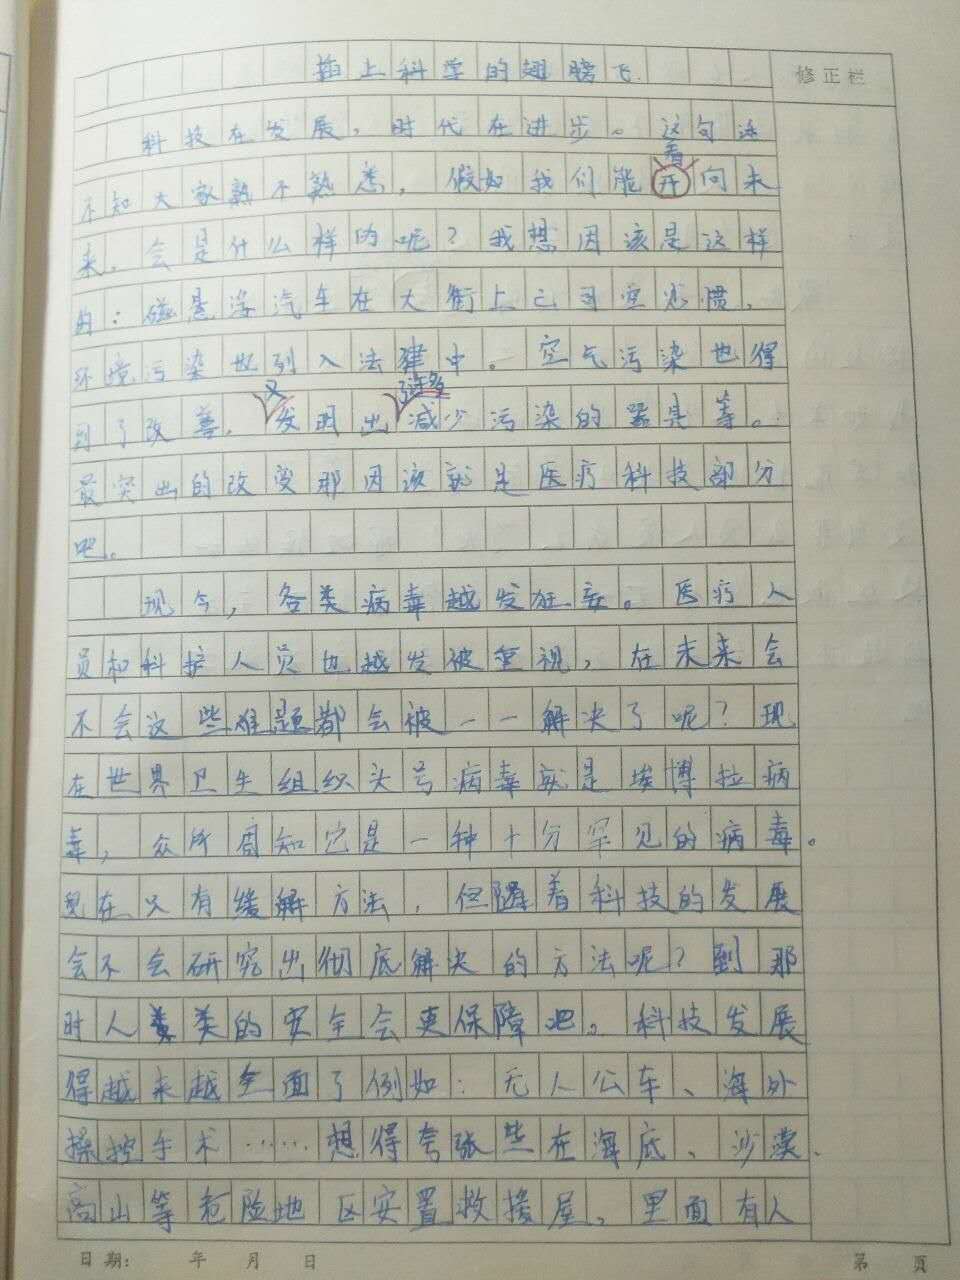 拍上科学的翅膀飞
修正栏
科技在发展，时代在进步。这句
看
不知大家熟不熟悉，假如我们能开向未
来，会是什么样的呢？我想因该是这样
的：磁悬浮汽车在大街上已司空见惯，
环境污染也列入法律中。空气污染也得
又 了许多
到了改善，发明出减少污染的器具等。
最突出的改变那因该就是医疗科技部分
吧。
现今，各类病毒越发狂妄。医疗人
员和科护人员也越发被重视，在未来会
不会这些难题都会被一一解决了呢？现
在世界卫生组织头号病毒就是埃博拉病
毒，众所周知它是一种十分罕见的病毒。
现在只有缓解方法，但随着科技的发展
会不会研究出彻底解决的方法呢？到那
时人类的安全会更保障吧。科技发展
得越来越全面了例如：无人公车、海外
操控手术……想得夸张些在海底、沙漠、
高山等危险地区安置救援屋，里面有人
日期： 年 月 日 第 页